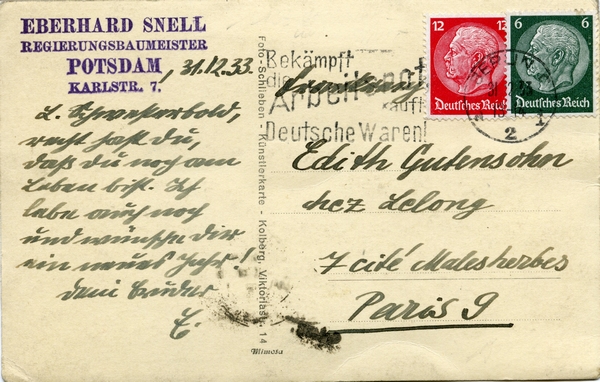 EBERHARD SNELL
REGIERUNGSBAUMEISTER
POTSDAM
KARLSTR. 7.
, 31.12.33.
L. Schwesterbold,
recht hast du,
daß du noch am
Leben bist. Ich
lebe auch noch
und wünsche dir
ein neues Jahr!
dein Bruder
E.
Foto-Schlieben - Künstlerkarte - Kolberg, Viktoriastr. 14
Mimosa
Bekämpft
die
Arbeitsnot
kauft
Deutsche Waren!
12 12
Deutsches Reich
6 6
Deutsches Reich
BERLIN
2
1
Edith Gutensohn
chez Lelong
7 cité Malesherbes
Paris 9